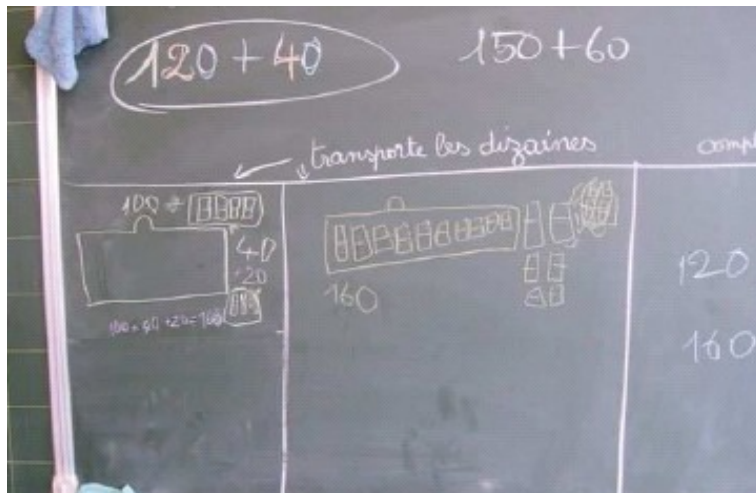 120 + 40
150 + 60
transporte les dizaines
compt
100 +
40
+20
100 + 40 + 20 = 160
160
120
160